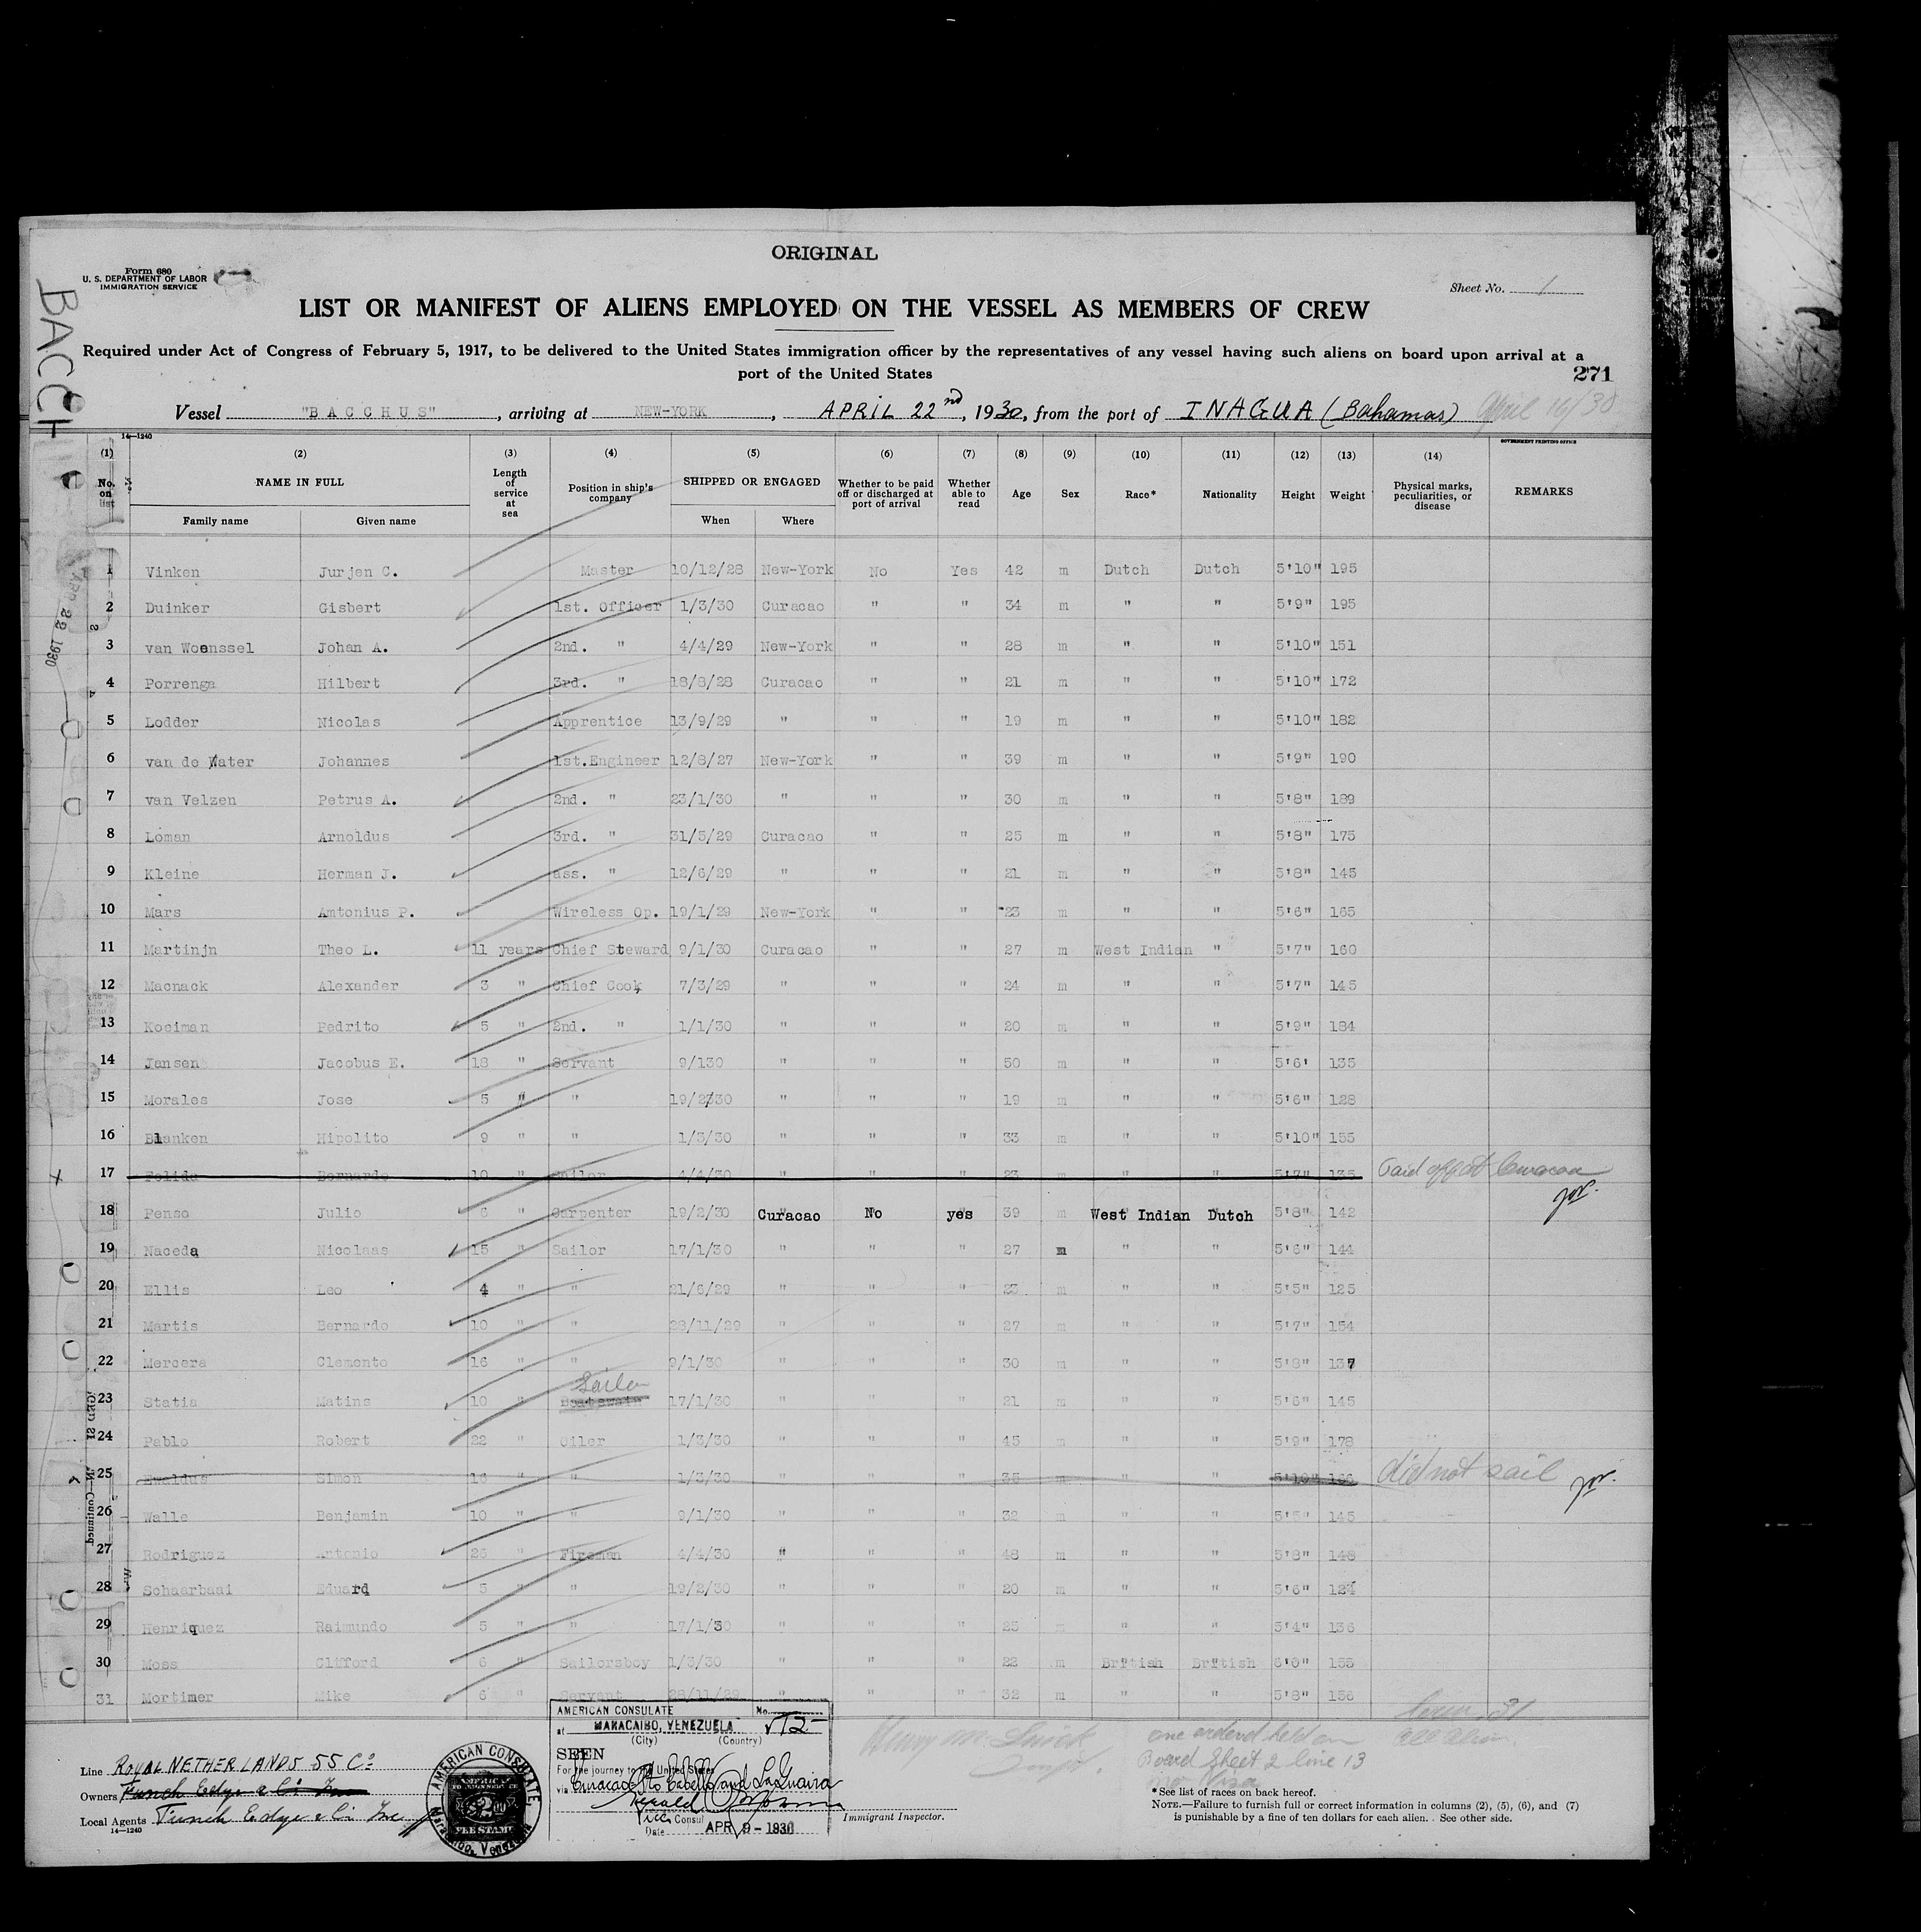 ORIGINAL
Form 680
U. S. DEPARTMENT OF LABOR
IMMIGRATION SERVICE
Sheet No. 1
LIST OR MANIFEST OF ALIENS EMPLOYED ON THE VESSEL AS MEMBERS OF CREW
Required under Act of Congress of February 5, 1917, to be delivered to the United States immigration officer by the representatives of any vessel having such aliens on board upon arrival at a
port of the United States
271
Vessel "BACCHUS", arriving at NEW-YORK, APRIL 22nd, 1930, from the port of INAGUA (Bahamas) April 16/30
14—1240
GOVERNMENT PRINTING OFFICE
(1) (2) (3) (4) (5) (6) (7) (8) (9) (10) (11) (12) (13) (14)
No. on list NAME IN FULL Length of service at sea Position in ship's company SHIPPED OR ENGAGED Whether to be paid off or discharged at port of arrival Whether able to read Age Sex Race* Nationality Height Weight Physical marks, peculiarities, or disease REMARKS
Family name Given name When Where
1 Vinken Jurjen C. Master 10/12/28 New-York No Yes 42 m Dutch Dutch 5'10" 195
2 Duinker Gisbert 1st. Officer 1/3/30 Curacao " " 34 m " " 5'9" 195
3 van Woenssel Johan A. 2nd. " 4/4/29 New-York " " 28 m " " 5'10" 151
4 Porrenga Hilbert 3rd. " 18/8/28 Curacao " " 21 m " " 5'10" 172
5 Lodder Nicolas Apprentice 13/9/29 " " " 19 m " " 5'10" 182
6 van de Water Johannes 1st.Engineer 12/8/27 New-York " " 39 m " " 5'9" 190
7 van Velzen Petrus A. 2nd. " 23/1/30 " " " 30 m " " 5'8" 189
8 Loman Arnoldus 3rd. " 31/5/29 Curacao " " 25 m " " 5'8" 175
9 Kleine Herman J. ass. " 12/6/29 " " " 21 m " " 5'8" 145
10 Mars Amtonius P. Wireless Op. 19/1/29 New-York " " 23 m " " 5'6" 165
11 Martinjn Theo L. 11 years Chief Steward 9/1/30 Curacao " " 27 m West Indian " 5'7" 160
12 Macnack Alexander 3 " Chief Cook 7/3/29 " " " 24 m " " 5'7" 145
13 Kooiman Pedrito 5 " 2nd. " 1/1/30 " " " 20 m " " 5'9" 184
14 Jansen Jacobus E. 18 " Servant 9/130 " " " 50 m " " 5'6' 135
15 Morales Jose 5 " " 19/2/30 " " " 19 m " " 5'6" 128
16 Blanken Hipolito 9 " " 1/3/30 " " " 33 m " " 5'10" 155
17 Felida Bernardo 10 " Sailor 4/4/30 " " " 23 m " " 5'7" 135 Paid off at Curacao
18 Penso Julio 6 " Carpenter 19/2/30 Curacao No yes 39 m West Indian Dutch 5'8" 142
19 Naceda Nicolaas 15 " Sailor 17/1/30 " " " 27 m " " 5'6" 144
20 Ellis Leo 4 " " 21/6/29 " " " 23 m " " 5'5" 125
21 Martis Bernardo 10 " " 23/11/29 " " " 27 m " " 5'7" 154
22 Mercera Clemento 16 " " 9/1/30 " " " 30 m " " 5'8" 137
Sailor
23 Statia Matins 10 " Boatswain 17/1/30 " " " 21 m " " 5'6" 145
24 Pablo Robert 22 " Oiler 1/3/30 " " " 45 m " " 5'9" 178
25 Ewaldus Simon 16 " " 1/3/30 " " " 35 m " " 5'10" 166 did not sail
26 Walle Benjamin 10 " " 9/1/30 " " " 32 m " " 5'5" 145
27 Rodriguez Antonio 26 " Fireman 4/4/30 " " " 48 m " " 5'8" 148
28 Schaarbaai Eduard 5 " " 19/2/30 " " " 20 m " " 5'6" 124
29 Henriquez Raimundo 5 " " 17/1/30 " " " 25 m " " 5'4" 136
30 Moss Clifford 6 " Sailorsboy 1/3/30 " " " 22 m British British 6'0" 155
31 Mortimer Mike 6 " Servant 28/11/29 " " " 32 m " " 5'8" 156
AMERICAN CONSULATE No.
at MARACAIBO, VENEZUELA
(City) (Country)
SEEN
For the journey to the United States
via Curacao, Pto Cabello and La Guaira
Vice Consul
Date APR 9 - 1930
AMERICAN CONSULATE
Maracaibo, Venezuela
FEE STAMP
Line ROYAL NETHERLANDS SS Co
Owners Funch Edye & Co Inc
Local Agents Funch Edye & Co Inc
14—1240
Immigrant Inspector.
one ordered held on
Board Sheet 2 line 13
no Visa
*See list of races on back hereof.
NOTE.—Failure to furnish full or correct information in columns (2), (5), (6), and (7)
is punishable by a fine of ten dollars for each alien. See other side.
BACCH
APR 22 1930